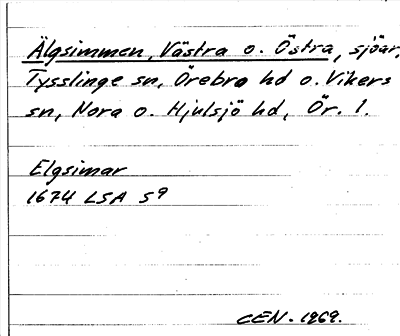 Älgsimmen, Västra o. Östra, sjöar,
Tysslinge sn, Örebro hd o. Vikers
sn, Nora o. Hjulsjö hd, Ör. l.
Elgsimar
1674 LSA S9
CEN. 1969.